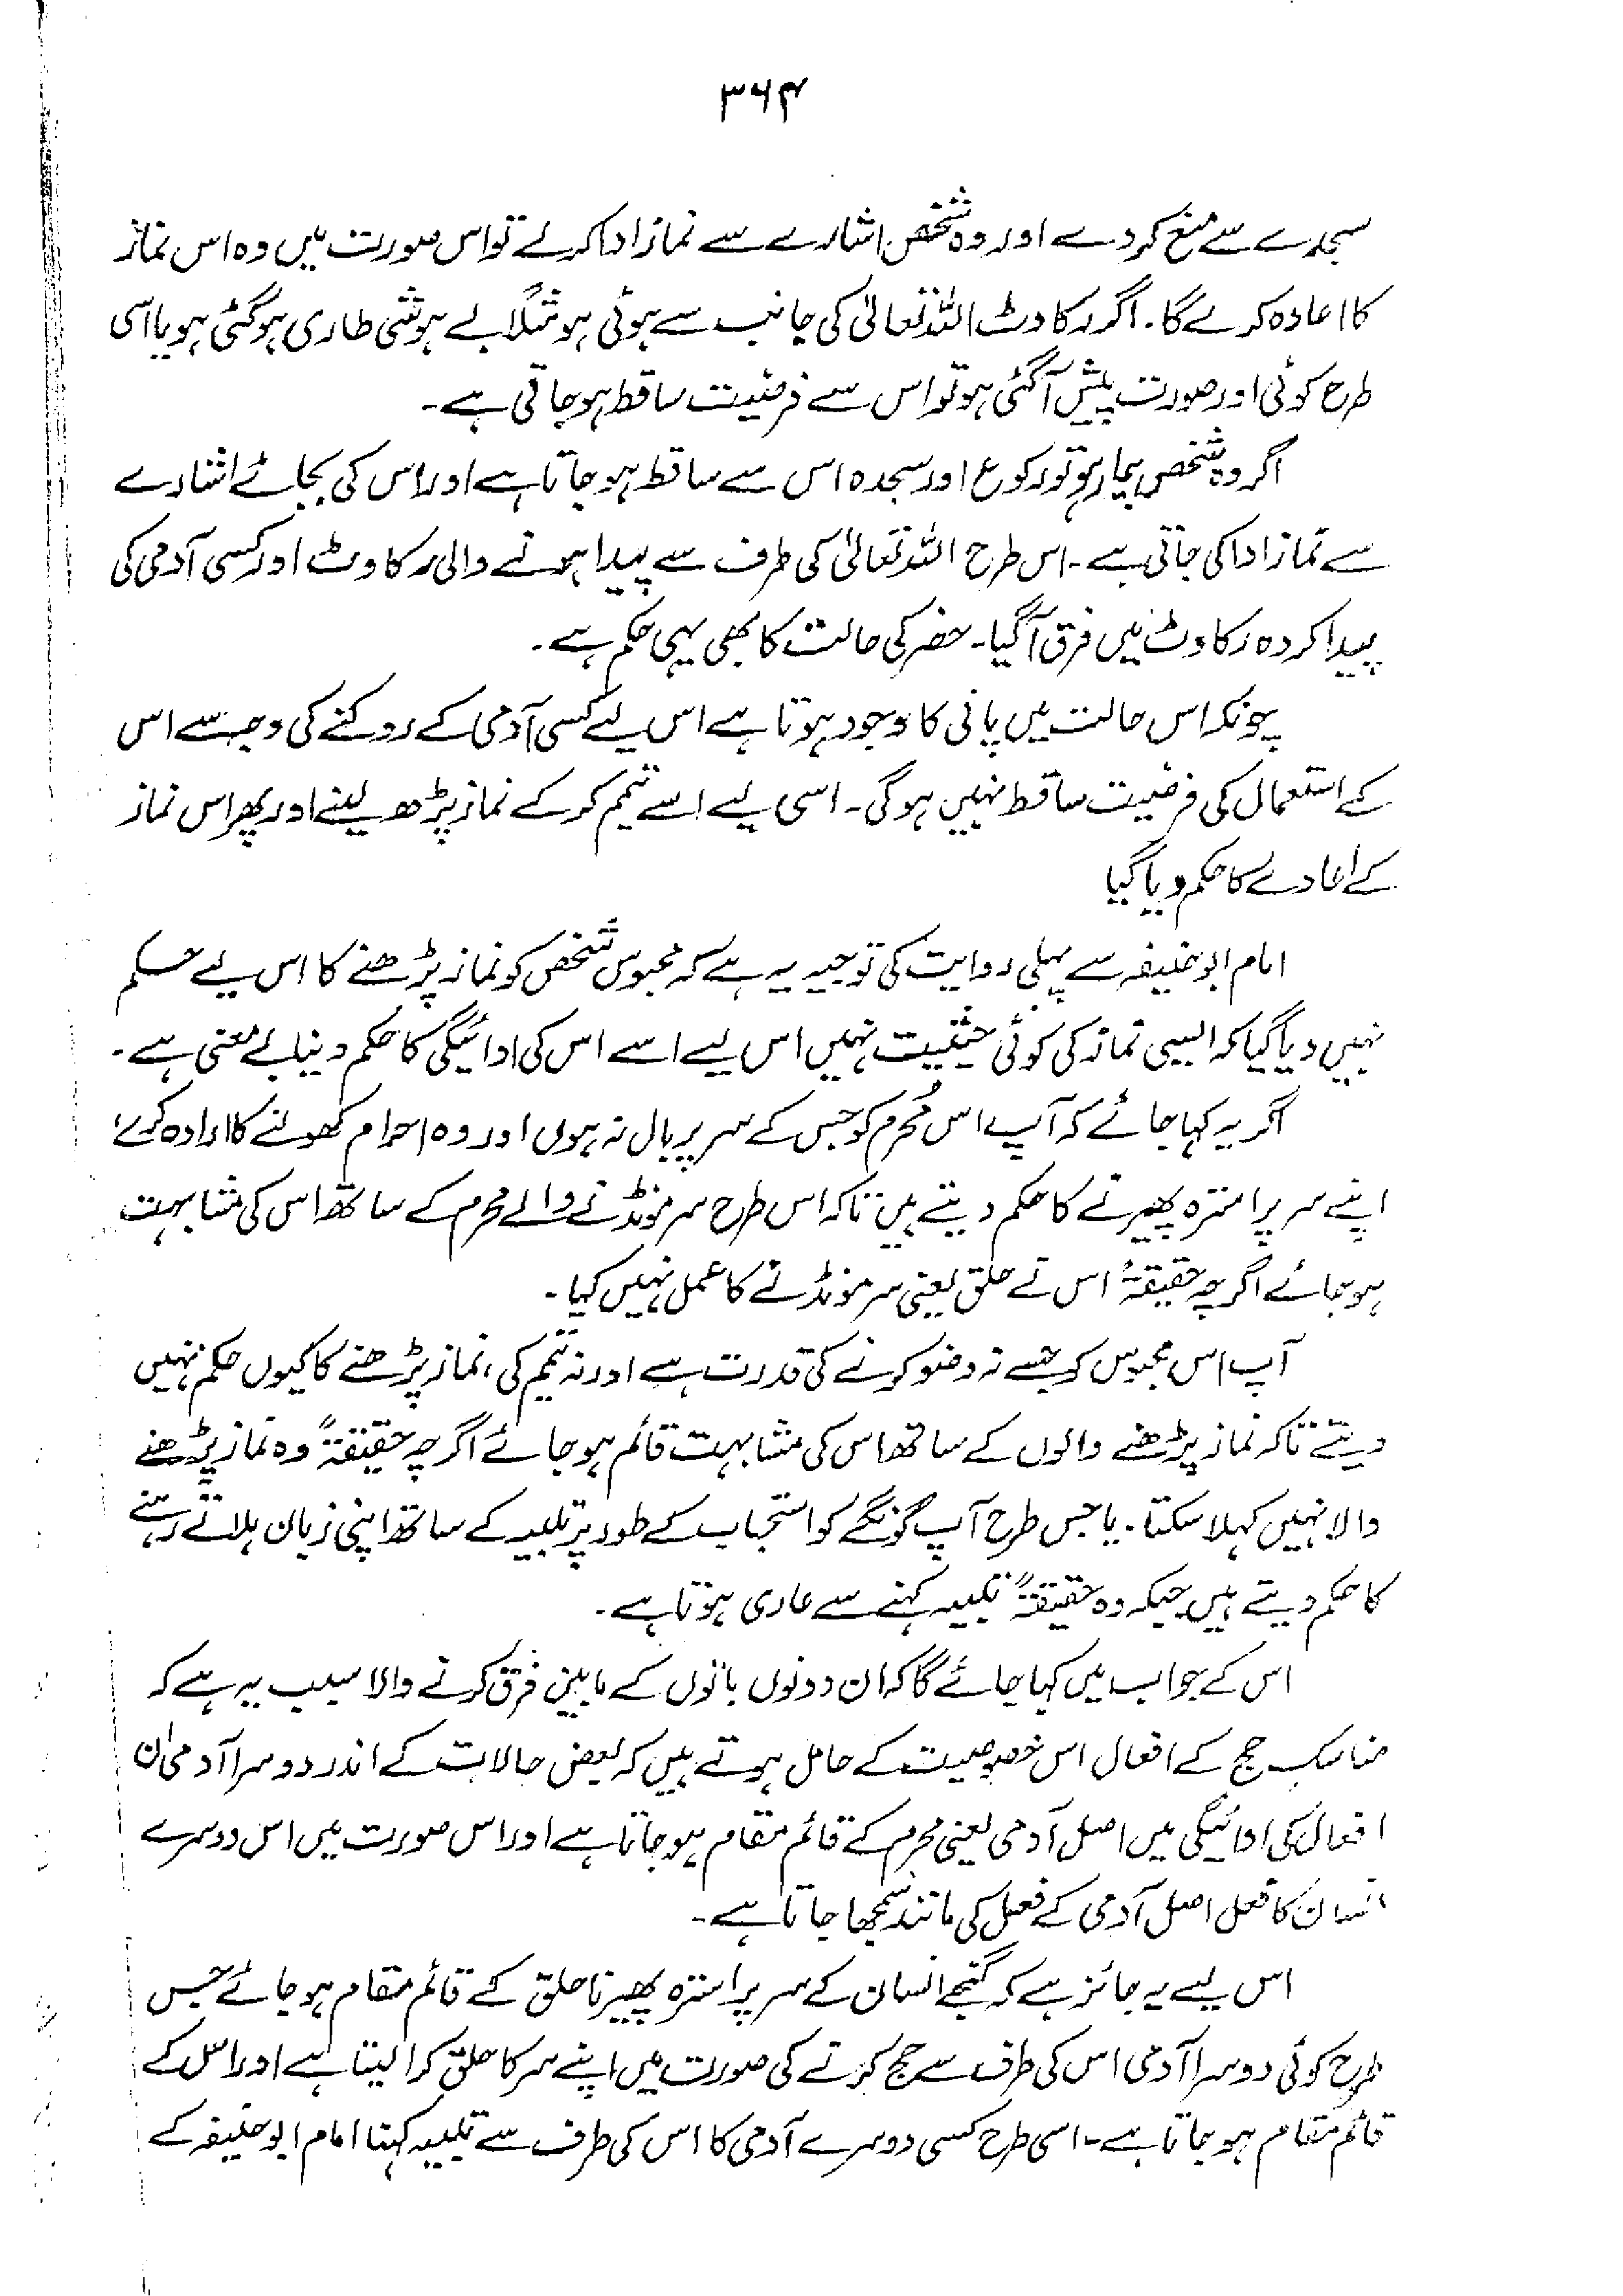 ۳۶۴
سجدے سے منع کر دے اور وہ شخص اشارے سے نماز ادا کرلے تو اس صورت میں وہ اس نماز
کا اعادہ کرے گا۔ اگر رکاوٹ اللہ تعالیٰ کی جانب سے ہوئی ہو مثلاً بے ہوشی طاری ہوگئی ہو یا اسی
طرح کوئی اور صورت پیش آگئی ہو تو اس سے فرضیت ساقط ہو جاتی ہے۔
اگر وہ شخص بیمار ہو تو رکوع اور سجدہ اس سے ساقط ہو جاتا ہے اور اس کی بجائے اشارے
سے نماز ادا کی جاتی ہے۔ اس طرح اللہ تعالیٰ کی طرف سے پیدا ہونے والی رکاوٹ اور کسی آدمی کی
پیدا کردہ رکاوٹ میں فرق آگیا۔ حضر کی حالت کا بھی یہی حکم ہے۔
چونکہ اس حالت میں پانی کا وجود ہوتا ہے اس لیے کسی آدمی کے روکنے کی وجہ سے اس
کے استعمال کی فرضیت ساقط نہیں ہوگی۔ اسی لیے اسے تیمم کرکے نماز پڑھ لینے اور پھر اس نماز
کے اعادے کا حکم دیا گیا
امام ابوحنیفہ سے پہلی روایت کی توجیہ یہ ہے کہ محبوس شخص کو نماز پڑھنے کا اس لیے حکم
نہیں دیا گیا کہ ایسی نماز کی کوئی حیثیت نہیں اس لیے اسے اس کی ادائیگی کا حکم دینا بے معنی ہے۔
اگر یہ کہا جائے کہ آپ اس مُحرم کو جس کے سر پر بال نہ ہوں اور وہ احرام کھولنے کا ارادہ کرے،
اپنے سر پر استرہ پھیرنے کا حکم دیتے ہیں تاکہ اس طرح سر مونڈنے والے محرم کے ساتھ اس کی مشابہت
ہو جائے اگرچہ حقیقۃً اس نے حلق یعنی سر مونڈنے کا عمل نہیں کیا۔
آپ اس محبوس کو جسے نہ وضو کرنے کی قدرت ہے اور نہ تیمم کی، نماز پڑھنے کا کیوں حکم نہیں
دیتے تاکہ نماز پڑھنے والوں کے ساتھ اس کی مشابہت قائم ہو جائے اگرچہ حقیقۃً وہ نماز پڑھنے
والا نہیں کہلا سکتا۔ یا جس طرح آپ گونگے کو استحباب کے طور پر تلبیہ کے ساتھ اپنی زبان ہلاتے رہنے
کا حکم دیتے ہیں جبکہ وہ حقیقۃً تلبیہ کہنے سے عاری ہوتا ہے۔
اس کے جواب میں کہا جائے گا کہ ان دونوں باتوں کے مابین فرق کرنے والا سبب یہ ہے کہ
مناسک حج کے افعال اس خصوصیت کے حامل ہوتے ہیں کہ بعض حالات کے اندر دوسرا آدمی ان
افعال کی ادائیگی میں اصل آدمی یعنی محرم کے قائم مقام ہو جاتا ہے اور اس صورت میں اس دوسرے
انسان کا فعل اصل آدمی کے فعل کی مانند سمجھا جاتا ہے۔
اس لیے یہ جائز ہے کہ گنجے انسان کے سر پر استرہ پھیرنا حلق کے قائم مقام ہو جائے جس
طرح کوئی دوسرا آدمی اس کی طرف سے حج کرنے کی صورت میں اپنے سر کا حلق کرا لیتا ہے اور اس کے
قائم مقام ہو جاتا ہے۔ اسی طرح کسی دوسرے آدمی کا اس کی طرف سے تلبیہ کہنا امام ابوحنیفہ کے